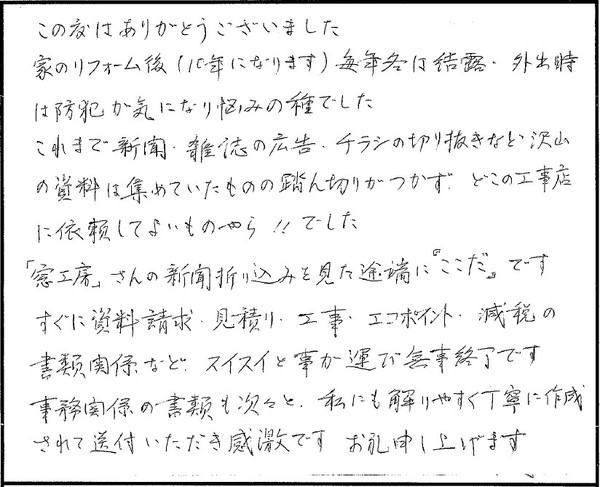 この度はありがとうございました
家のリフォーム後(10年になります)毎年冬は結露・外出時
は防犯が気になり悩みの種でした
これまで新聞・雑誌の広告・チラシの切り抜きなど沢山
の資料は集めていたものの踏ん切りがつかず どこの工事店
に依頼してよいものやら!!でした
「窓工房」さんの新聞折り込みを見た途端に『ここだ』です
すぐに資料請求・見積り・工事・エコポイント・減税の
書類関係など スイスイと事が運び無事終了です
事務関係の書類も次々と、私にも解りやすく丁寧に作成
されて送付いただき感激です お礼申し上げます